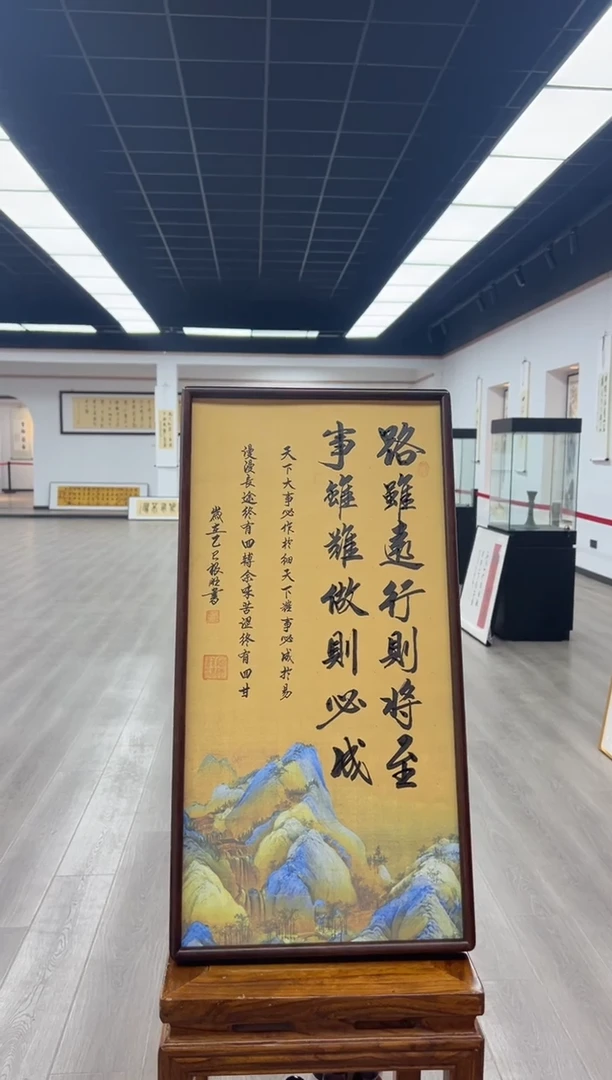 路雖遠行則將至
事雖難做則必成
天下大事必作於細天下難事必成於易
漫漫長途終有回轉余味苦澀終有回甘
歲在乙巳